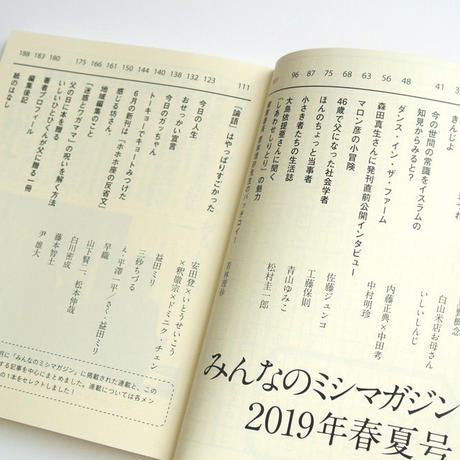 みんなのミシマガジン
2019年春夏号
きんじょ
いしいしんじ
白山米店お母さん
今の世間の常識をイスラムの
知見からみると？
内藤正典×中田考
ダンス・イン・ザ・ファーム
中村明珍
森田真生さんに発刊直前公開インタビュー
マロン彦の小冒険
佐藤ジュンコ
46歳で父になった社会学者
工藤保則
ほんのちょっと当事者
青山ゆみこ
小さき者たちの生活誌
松村圭一郎
大島依提亜さんに聞く
「しあわせしりとり」の魅力
若林理砂
41
48
56
63
75
87
96
111
「論語」はやっぱりすごかった
安田登×いとうせいこう
×釈徹宗×ドミニク・チェン
123
今日の人生
益田ミリ
132
おせっかい宣言
三砂ちづる
138
今日のガッちゃん
え・平澤一平/さく・益田ミリ
140
トーキョーでキョートみつけた
早織
144
6月の新刊は『ホホホ座の反省文』
山下賢二、松本伸哉
150
感じる坊さん。
白川密成
151
地域編集のこと
藤本智士
161
「迷惑とワガママ」の呪いを解く方法
尹雄大
166
父の日に本を贈る
175
いしいひとひくんが父に贈る一冊
180
著者プロフィール
183
編集後記
188
紙のはなし
月に「みんなのミシマガジン」に掲載された連載と、この
する記事を中心にまとめました。連載については各メン
の1本をセレクトしました！